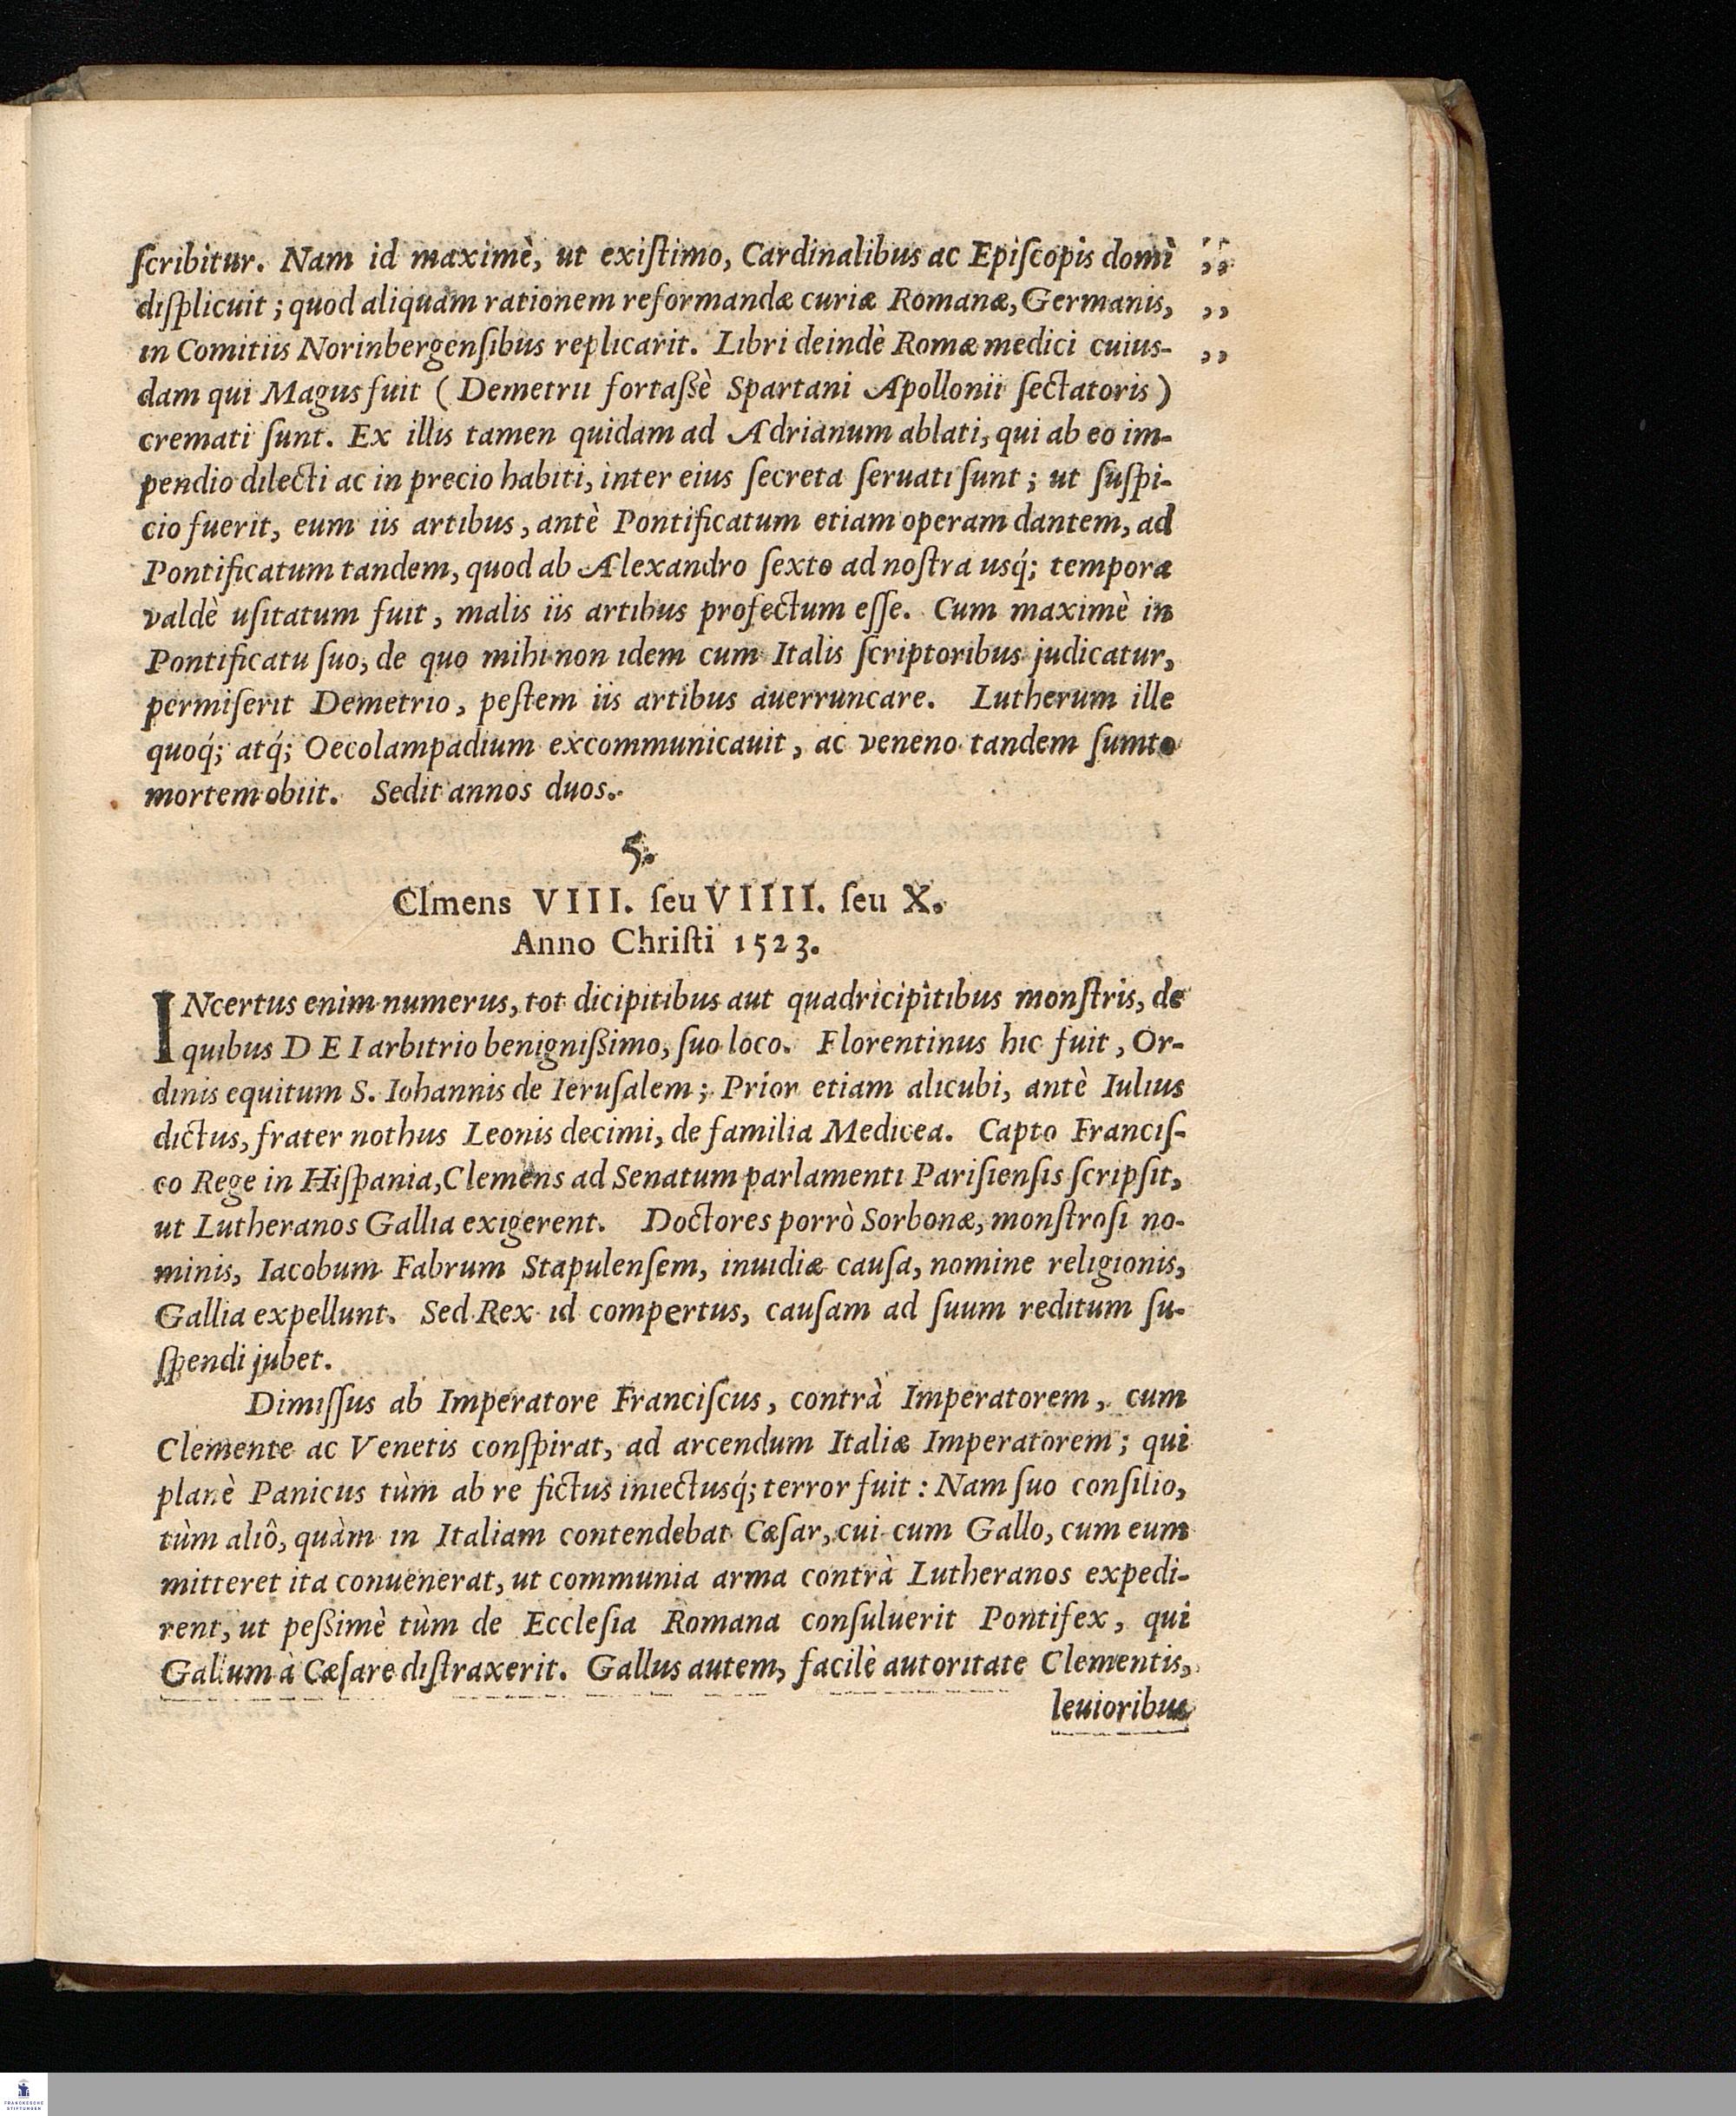 ſcribitur. Nam id maximè, ut exiſtimo, Cardinalibus ac Epiſcopis domi ,,
diſplicuit; quod aliquam rationem reformandæ curiæ Romanæ, Germanis, ,,
in Comitiis Norinbergenſibus replicarit. Libri deindè Romæ medici cuius- ,,
dam qui Magus fuit ( Demetrii fortaßè Spartani Apollonii ſectatoris )
cremati ſunt. Ex illis tamen quidam ad Adrianum ablati, qui ab eo im-
pendio dilecti ac in precio habiti, inter eius ſecreta ſeruati ſunt; ut ſuſpi-
cio fuerit, eum iis artibus, antè Pontificatum etiam operam dantem, ad
Pontificatum tandem, quod ab Alexandro ſexto ad noſtra usq́; tempora
valdè uſitatum fuit, malis iis artibus profectum eſſe. Cum maximè in
Pontificatu ſuo, de quo mihi non idem cum Italis ſcriptoribus judicatur,
permiſerit Demetrio, peſtem iis artibus auerruncare. Lutherum ille
quoq́; atq́; Oecolampadium excommunicauit, ac veneno tandem ſumto
mortem obiit. Sedit annos duos.
5.
Clmens VIII. ſeu VIIII. ſeu X.
Anno Chriſti 1523.
INcertus enim numerus, tot dicipitibus aut quadricipitibus monſtris, de
quibus DEI arbitrio benignißimo, ſuo loco. Florentinus hic fuit, Or-
dinis equitum S. Iohannis de Ieruſalem; Prior etiam alicubi, antè Iulius
dictus, frater nothus Leonis decimi, de familia Medicea. Capto Franciſ-
co Rege in Hiſpania, Clemens ad Senatum parlamenti Pariſienſis ſcripſit,
ut Lutheranos Gallia exigerent. Doctores porrò Sorbonæ, monſtroſi no-
minis, Iacobum Fabrum Stapulenſem, inuidiæ cauſa, nomine religionis,
Gallia expellunt. Sed Rex id compertus, cauſam ad ſuum reditum ſu-
ſpendi jubet.
Dimiſſus ab Imperatore Franciſcus, contrà Imperatorem, cum
Clemente ac Venetis conſpirat, ad arcendum Italiæ Imperatorem; qui
planè Panicus tùm ab re fictus iniectusq́; terror fuit: Nam ſuo conſilio,
tùm aliô, quàm in Italiam contendebat Cæſar, cui cum Gallo, cum eum
mitteret ita conuenerat, ut communia arma contrà Lutheranos expedi-
rent, ut peßimè tùm de Eccleſia Romana conſuluerit Pontifex, qui
Gallum à Cæſare diſtraxerit. Gallus autem, facilè autoritate Clementis,
leuioribus
FRANCKESCHE
STIFTUNGEN